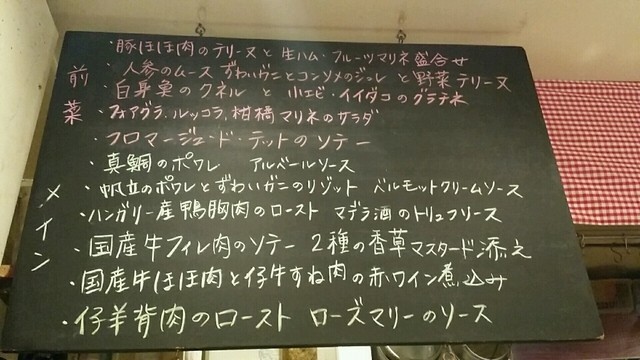 前菜
・豚ほほ肉のテリーヌと生ハム・フルーツマリネ盛合せ
・人参のムースずわいガニとコンソメのジュレと野菜テリーヌ
・白身魚のクネルと小エビ・イイダコのグラチネ
・フォアグラ、ルッコラ、柑橘マリネのサラダ
・フロマージュ・ド・テットのソテー
メイン
・真鯛のポワレ アルベールソース
・帆立のポワレとずわいガニのリゾット ベルモットクリームソース
・ハンガリー産鴨胸肉のロースト マデラ酒のトリュフソース
・国産牛フィレ肉のソテー 2種の香草マスタード添え
・国産牛ほほ肉と仔牛すね肉の赤ワイン煮込み
・仔羊背肉のロースト ローズマリーのソース